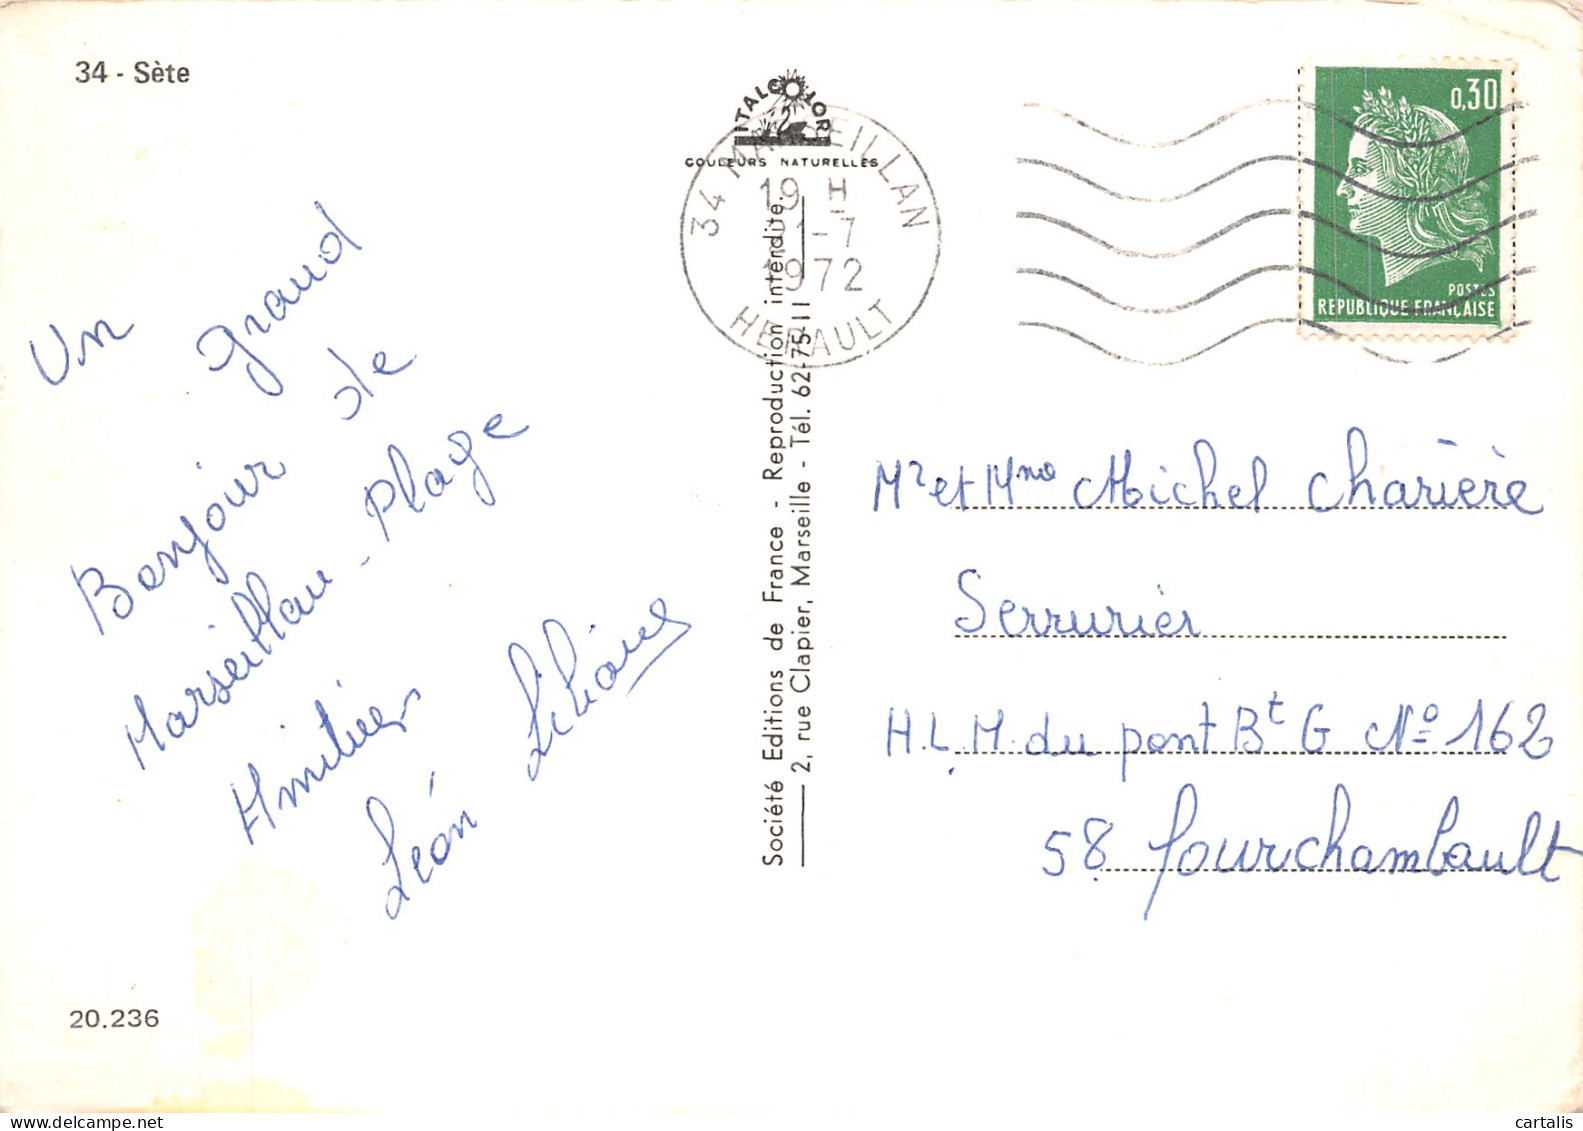 34 - Sète
ITALCOLOR
COULEURS NATURELLES
34 MARSEILLAN
19 H
21-7
1972
HERAULT
0,30
POSTES
REPUBLIQUE FRANÇAISE
Un grand
Bonjour de
Marseillan-Plage
Amitiés
Léon Liliane
Société Editions de France - Reproduction interdite.
2, rue Clapier, Marseille - Tél. 62-75-11
Mr et Mme Michel Charière
Serrurier
H.L.M. du pont Bt G No 162
58 Fourchambault
20.236
cartalis
delcampe.net